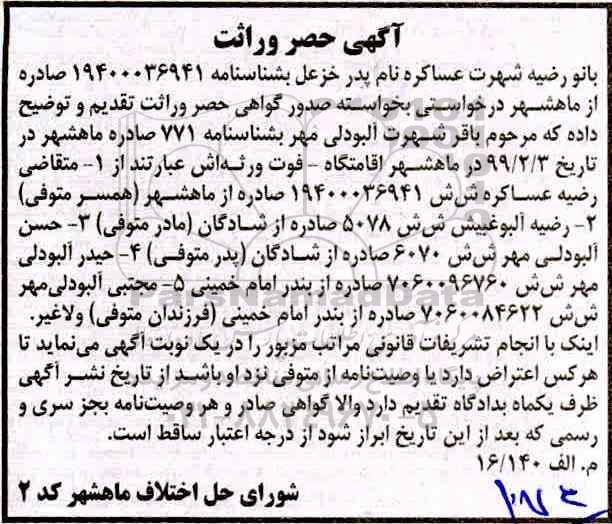 آگهی حصر وراثت
بانو رضیه شهرت عساکره نام پدر خزعل بشناسنامه ۱۹۴۰۰۰۳۶۹۴۱ صادره
از ماهشهر درخواستی بخواسته صدور گواهی حصر وراثت تقدیم و توضیح
داده که مرحوم باقر شهرت آلبودلی مهر بشناسنامه ۷۷۱ صادره ماهشهر در
تاریخ ۹۹/۲/۳ در ماهشهر اقامتگاه - فوت ورثه‌اش عبارتند از ۱- متقاضی
رضیه عساکره ش‌ش ۱۹۴۰۰۰۳۶۹۴۱ صادره از ماهشهر (همسر متوفی)
۲- رضیه آلبوغبیش ش‌ش ۵۰۷۸ صادره از شادگان (مادر متوفی) ۳- حسن
آلبودلی مهر ش‌ش ۶۰۷۰ صادره از شادگان (پدر متوفی) ۴- حیدر آلبودلی
مهر ش‌ش ۷۰۶۰۰۹۶۷۶۰ صادره از بندر امام خمینی ۵- مجتبی آلبودلی‌مهر
ش‌ش ۷۰۶۰۰۸۴۶۲۲ صادره از بندر امام خمینی (فرزندان متوفی) ولاغیر.
اینک با انجام تشریفات قانونی مراتب مزبور را در یک نوبت آگهی می‌نماید تا
هرکس اعتراض دارد یا وصیت‌نامه از متوفی نزد او باشد از تاریخ نشر آگهی
ظرف یکماه بدادگاه تقدیم دارد والا گواهی صادر و هر وصیت‌نامه بجز سری و
رسمی که بعد از این تاریخ ابراز شود از درجه اعتبار ساقط است.
م. الف ۱۶/۱۴۰
شورای حل اختلاف ماهشهر کد ۲
ParsNamadData